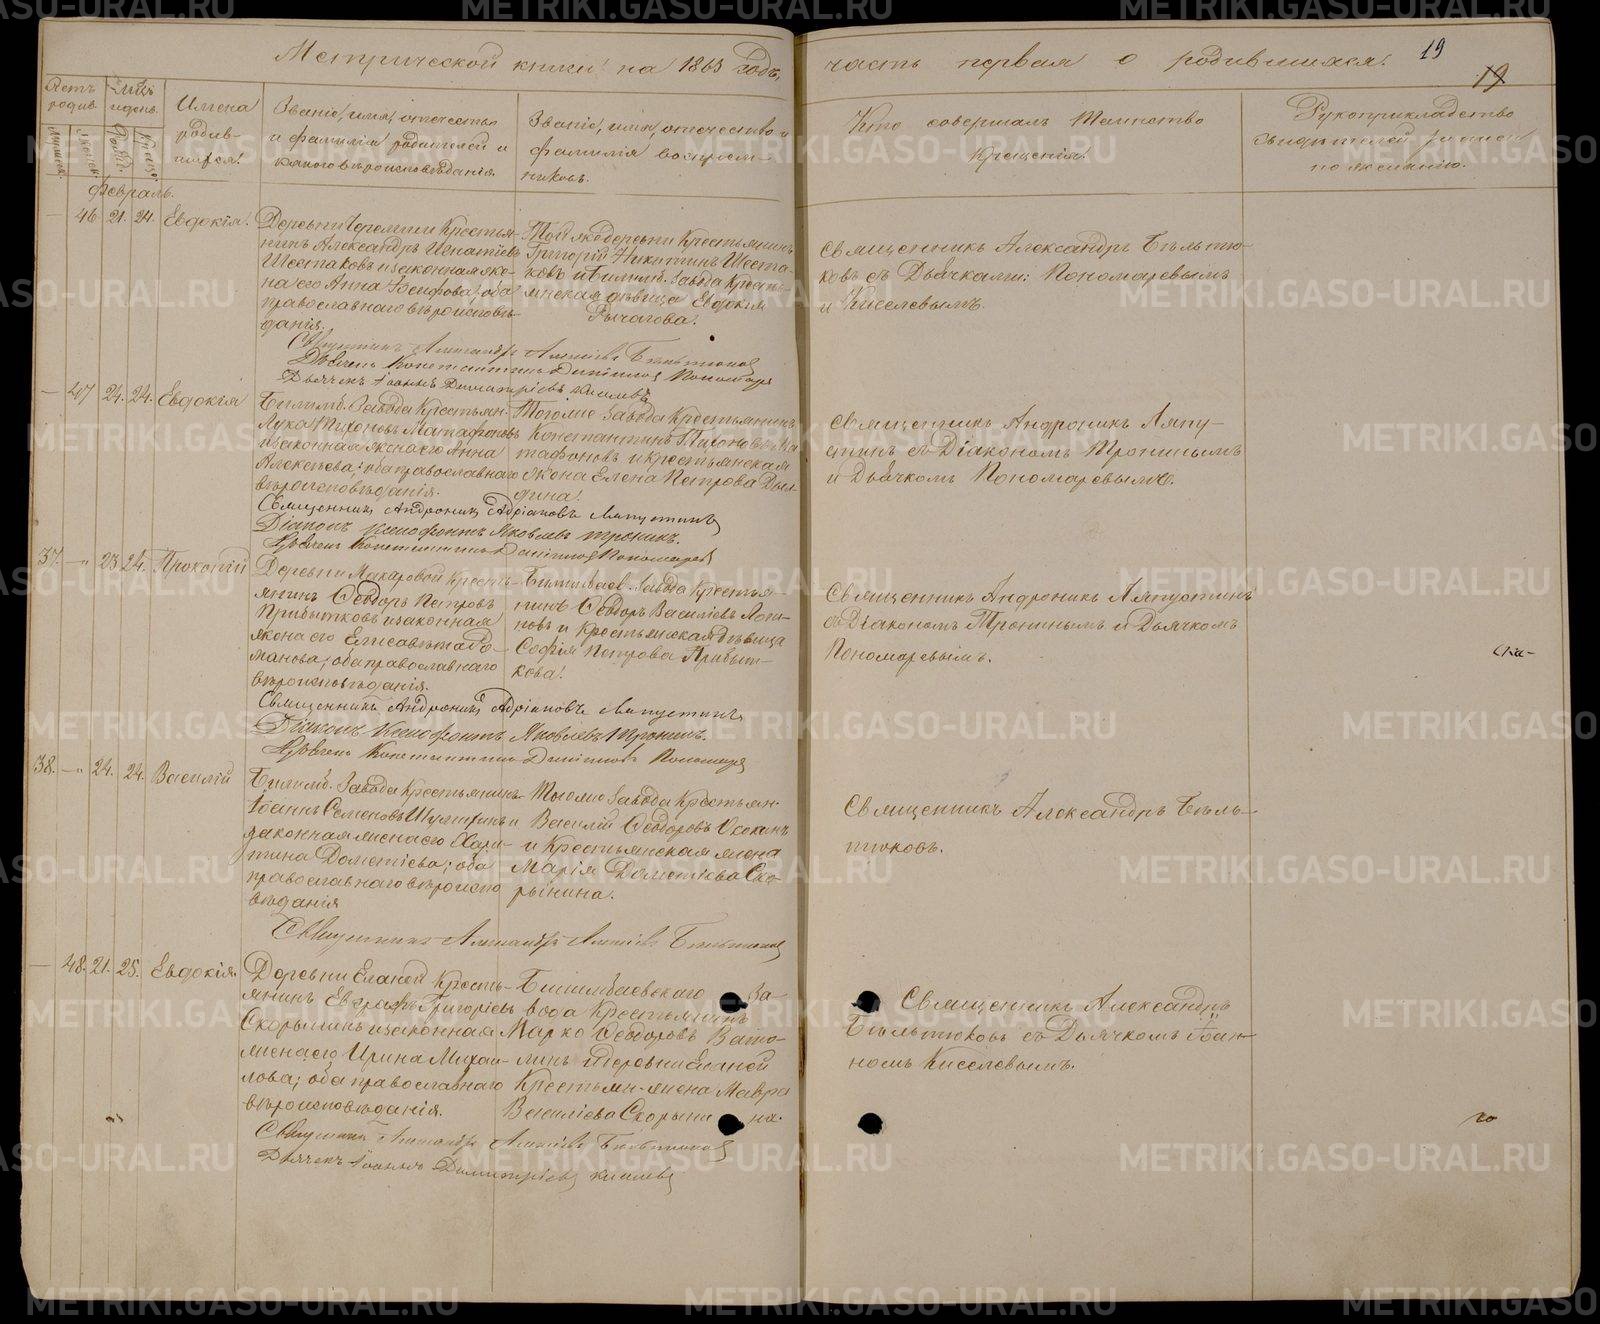 Метрической книги на 1863 годъ,
часть первая о родившихся.
19
19
Счетъ родив.
Мужеска.
Женска.
Мѣсяцъ и день.
Рожд.
Крещен.
Имена родив-
шихся.
Званіе, имя, отчество
и фамилія родителей и
какого вѣроисповѣданія
Званіе, имя, отчество и
фамилія воспріем-
никовъ.
Кто совершалъ Таинство
Крещенія.
Рукоприкладство
свидѣтелей записи
по желанію.
Февраль.
46 21. 24. Евдокія.
Деревни Черемши Крестья-
нинъ Александръ Игнатіевъ
Шестаковъ и законная же-
на его Анна Іосифова; оба
православнаго вѣроисповѣ-
данія.
Той же деревни Крестьянинъ
Григорій Никитинъ Шеста-
ковъ и Билимб. Завода Кресть-
янская дѣвица Евдокія
Рычагова.
Священникъ Александръ Бѣльтю-
ковъ съ Дьячками: Пономаревымъ
и Киселевымъ.
Священникъ Александръ Алексіевъ Бѣльтюковъ
Дьячекъ Константинъ Даниловъ Пономаревъ
Дьячекъ Іоаннъ Димитріевъ Киселевъ
47 24. 24. Евдокія
Билимб. Завода Крестьян.
Лука Тихоновъ Матафоновъ
и законная жена его Анна
Алексѣева; оба православнаго
вѣроисповѣданія.
Тогоже Завода Крестьянинъ
Константинъ Тихоновъ Ма
тафоновъ и крестьянская
жена Елена Петрова Дыл-
дина.
Священникъ Андроникъ Ляпу-
стинъ съ Діакономъ Пронинымъ
и Дьячкомъ Пономаревымъ.
Священникъ Андроникъ Адріановъ Ляпустинъ
Діаконъ Ксенофонтъ Яковлевъ Пронинъ.
Дьячекъ Константинъ Даниловъ Пономаревъ
37. 23 24. Прокопій
Деревни Макаровой Кресть-
янинъ Ѳеодоръ Петровъ
Прибытковъ и законная
жена его Елисавета Ро-
манова; оба православнаго
вѣроисповѣданія.
Билимбаев. Завода Крестья-
нинъ Ѳеодоръ Василіевъ Логи-
новъ и Крестьянская дѣвица
Софія Петрова Прибыт-
кова.
Священникъ Андроникъ Ляпустинъ
съ Діакономъ Пронинымъ и Дьячкомъ
Пономаревымъ.
Священникъ Андроникъ Адріановъ Ляпустинъ
Діаконъ Ксенофонтъ Яковлевъ Пронинъ.
Дьячекъ Константинъ Даниловъ Пономаревъ
38. 24. 24. Василій
Билимб. Завода Крестьянинъ
Іоаннъ Семеновъ и
законная жена его Хари-
тина Дометіева; оба
православнаго вѣроиспо
вѣданія
Тогоже Завода Крестьян.
Василій Ѳеодоровъ Осокинъ
и Крестьянская жена
Марія Дометіева Ско-
рынина.
Священникъ Александръ Бѣль-
тюковъ.
Священникъ Александръ Алексіевъ Бѣльтюковъ
48. 21. 25. Евдокія.
Деревни Еланей Кресть-
янинъ Евграфъ Григорьевъ
Скорынинъ и законная
жена его Ирина Михаи-
лова; оба православнаго
вѣроисповѣданія.
Билимбаевскаго За-
вода Крестьянинъ
Марко Ѳеодоровъ Вато-
линъ и деревни Еланей
Крестьян. жена Мавра
Василіева Скорынина.
Священникъ Александръ
Бѣльтюковъ съ Дьячкомъ Іоан-
номъ Киселевымъ.
Священникъ Александръ Алексіевъ Бѣльтюковъ
Дьячекъ Іоаннъ Димитріевъ Киселевъ
METRIKI.GASO-URAL.RU